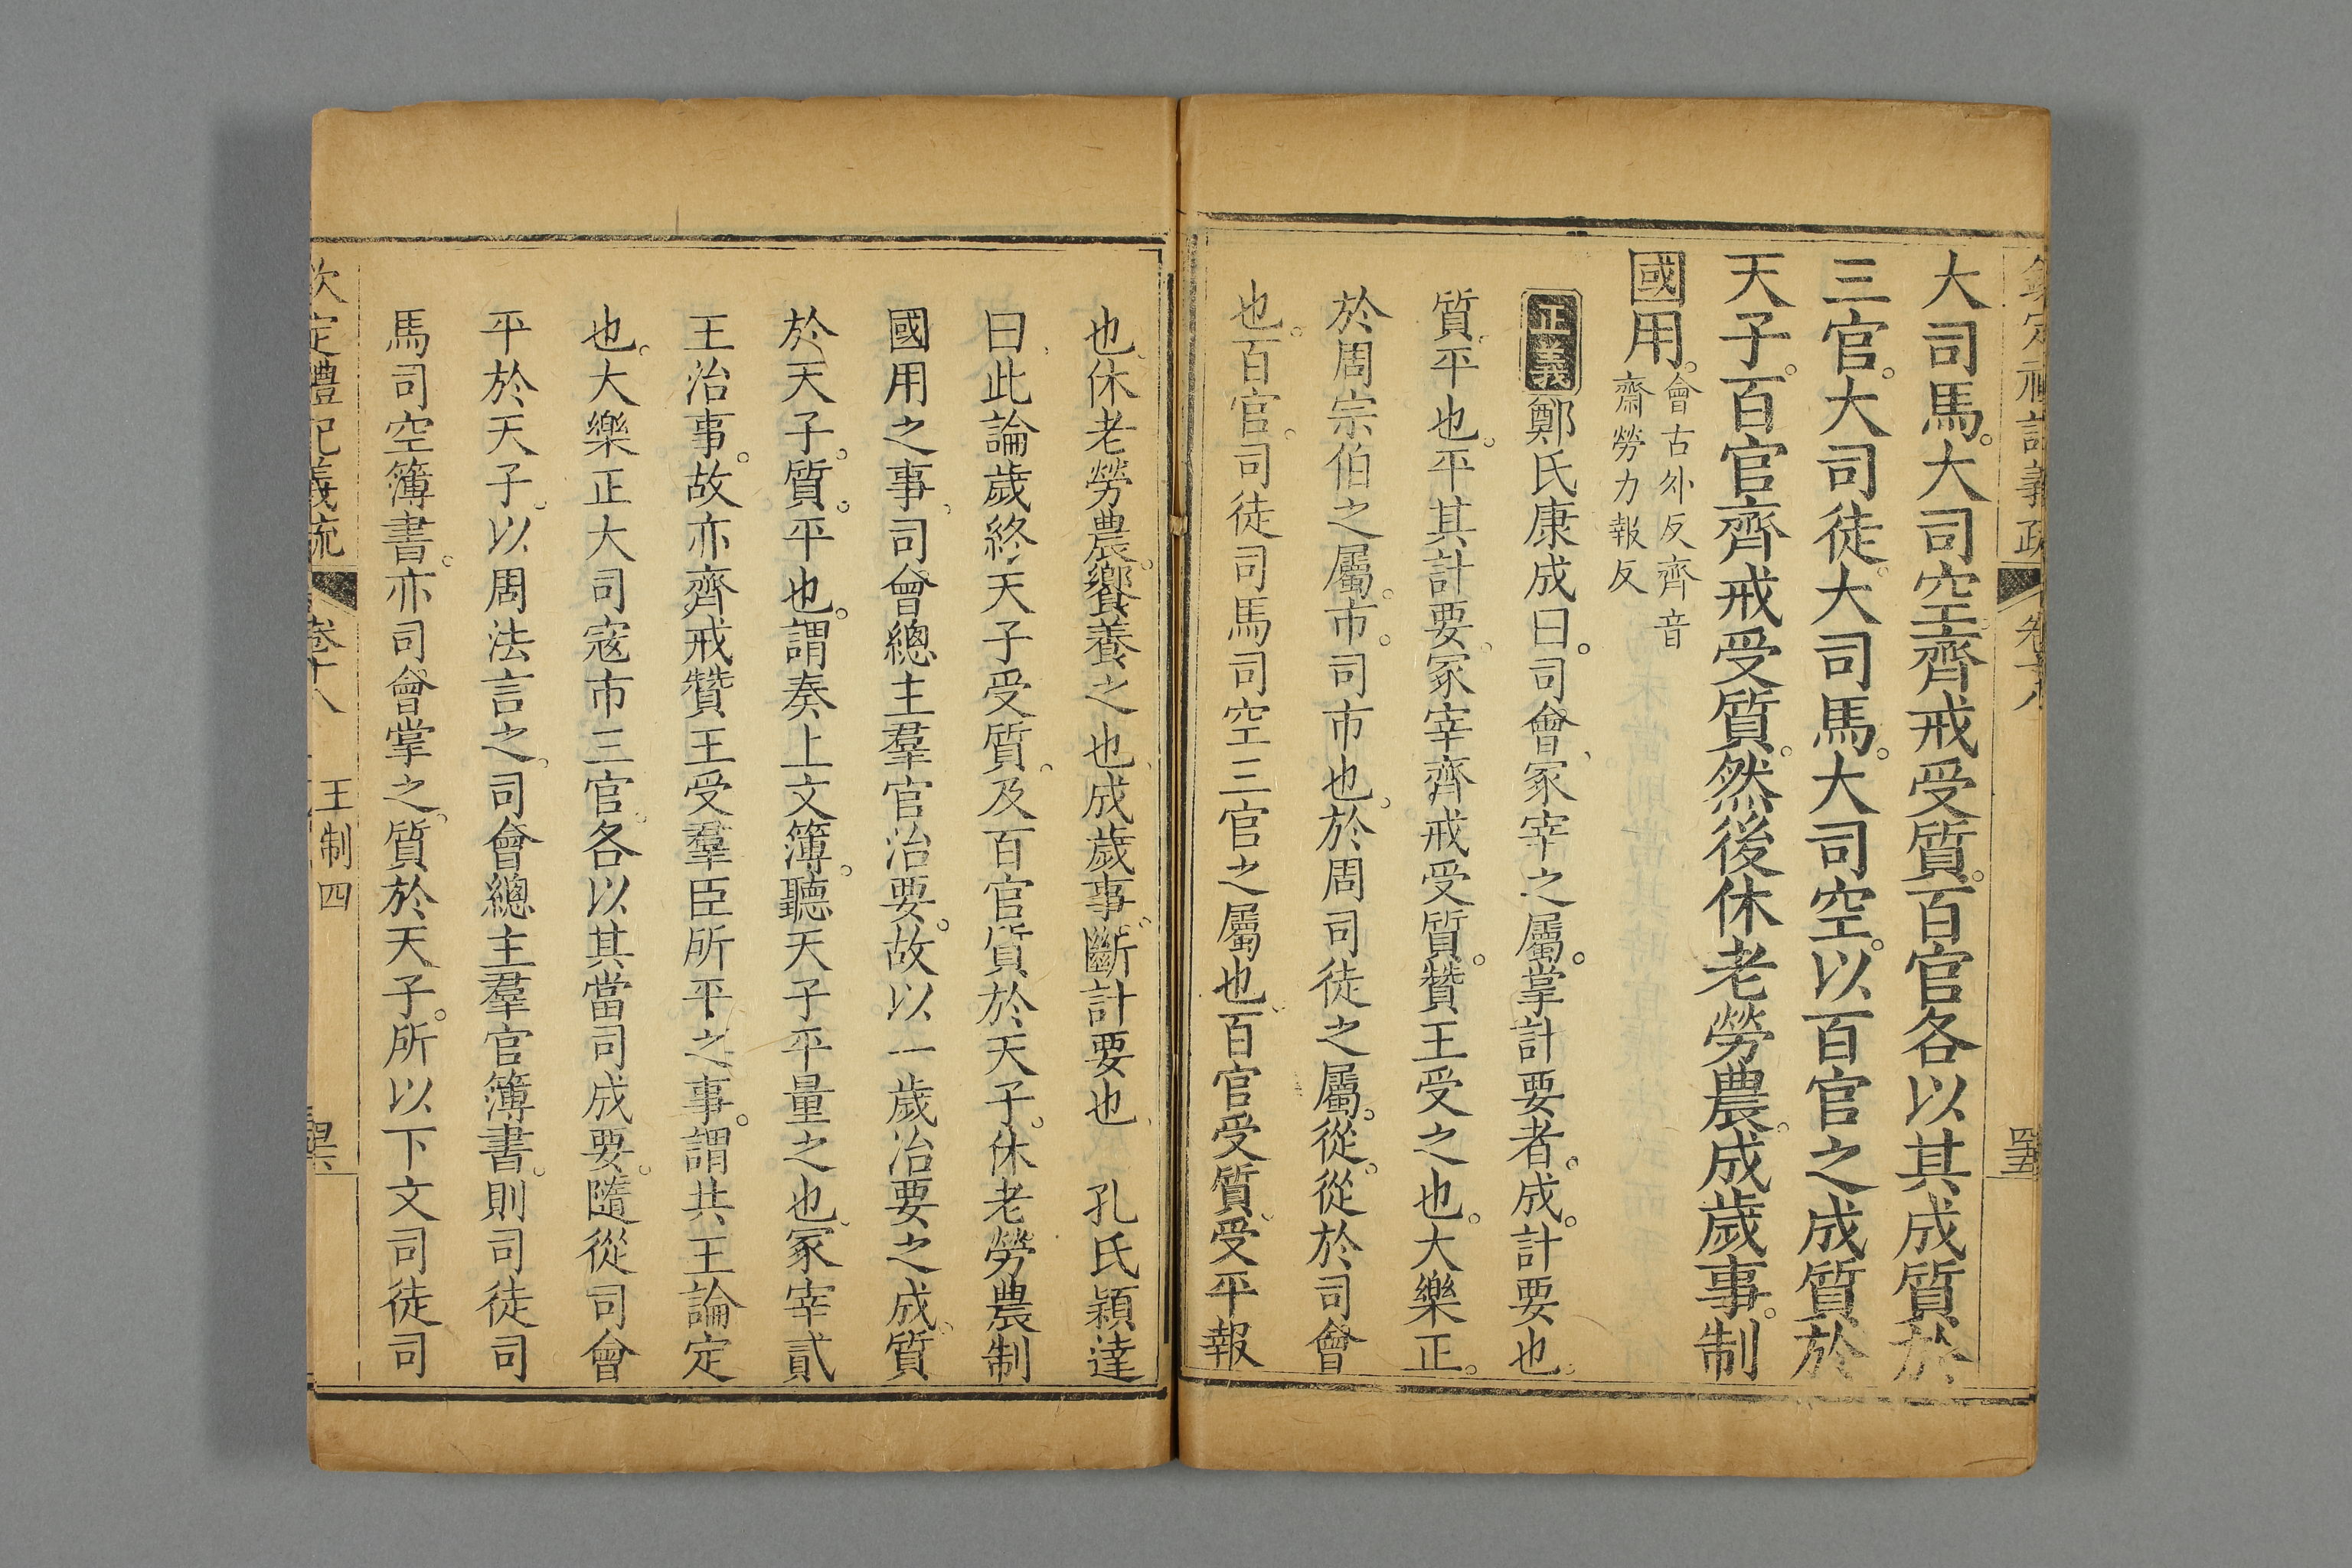 大司馬。大司空齊戒受質。百官各以其成質於
三官。大司徒。大司馬。大司空。以百官之成質於
天子。百官齊戒受質。然後休老勞農。成歲事。制
國用。會古外反齊音
齋勞力報反
正義鄭氏康成曰。司會、冢宰之屬。掌計要者。成。計要也。
質、平也。平其計要。冢宰齊戒受質。贊王受之也。大樂正。
於周宗伯之屬。市。司市也。於周司徒之屬。從。從於司會
也。百官。司徒司馬司空三官之屬也。百官受質、受平報
也、休老勞農。饗養之也、成歲事、斷計要也 孔氏穎達
曰、此論歲終天子受質。及百官質於天子。休老勞農制
國用之事、司會總主羣官治要。故以一歲治要之成。質
於天子。質。平也。謂奏上文簿。聽天子平量之也、冢宰貳
王治事。故亦齊戒贊王受羣臣所平之事。謂共王論定
也。大樂正大司寇市三官。各以其當司成要。隨從司會
平於天子。以周法言之。司會總主羣官簿書。則司徒司
馬司空簿書。亦司會掌之。質於天子。所以下文司徒司
欽定禮記義疏 卷十八 王制四